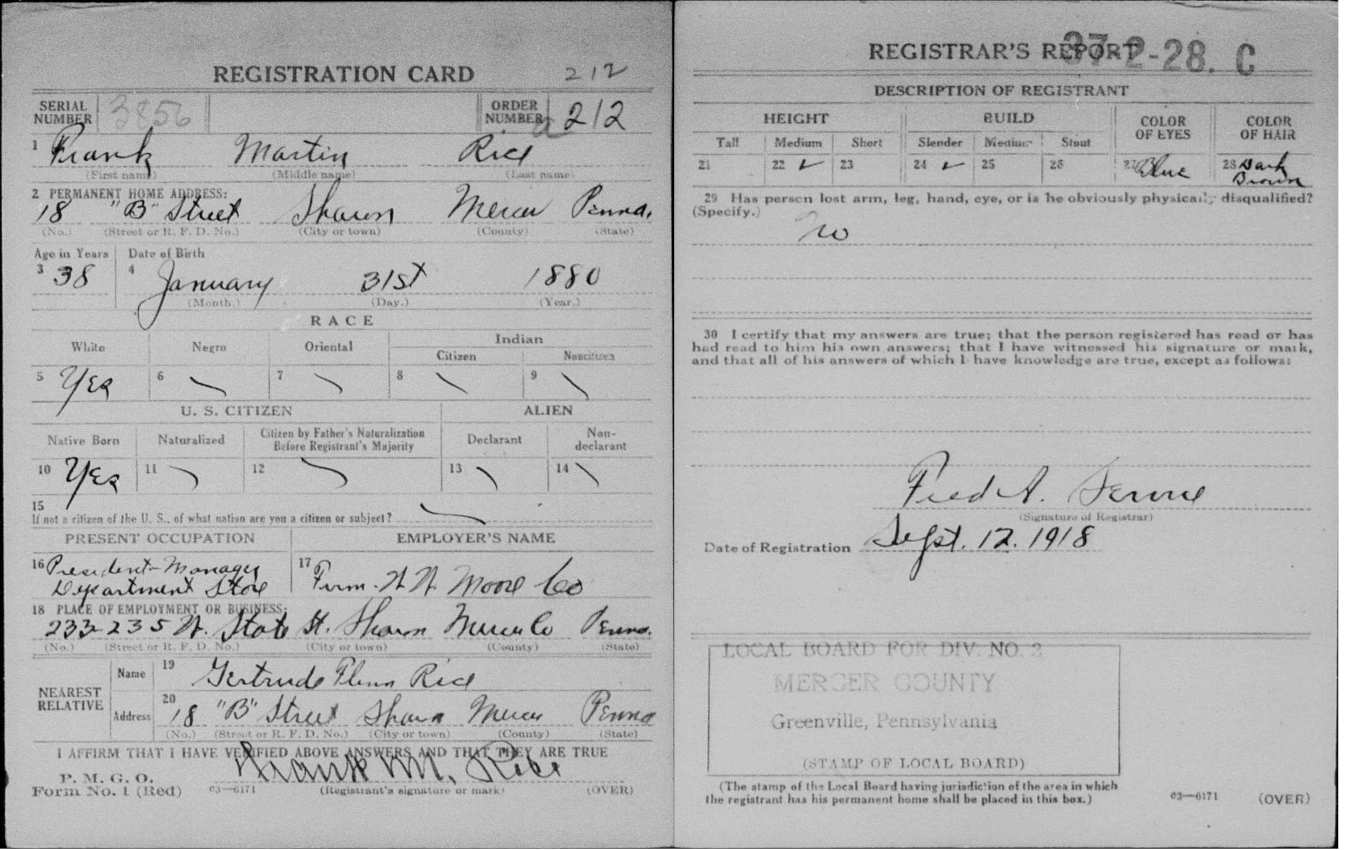 REGISTRATION CARD 212
SERIAL NUMBER 3856 ORDER NUMBER a 212
1 Frank Martin Rice
(First name) (Middle name) (Last name)
2 PERMANENT HOME ADDRESS:
18 "B" Street Sharon Mercer Penna.
(No.) (Street or R. F. D. No.) (City or town) (County) (State)
Age in Years Date of Birth
3 38 4 January 31st 1880
(Month.) (Day.) (Year.)
RACE
White Negro Oriental Indian
Citizen Noncitizen
5 Yes 6 7 8 9
U. S. CITIZEN ALIEN
Native Born Naturalized Citizen by Father's Naturalization Before Registrant's Majority Declarant Non-declarant
10 Yes 11 12 13 14
15
If not a citizen of the U. S., of what nation are you a citizen or subject?
PRESENT OCCUPATION EMPLOYER'S NAME
16 President-Manager
Department Store 17 Firm. Moore Co
18 PLACE OF EMPLOYMENT OR BUSINESS:
233-235 W. State St. Sharon Mercer Co Penna.
(No.) (Street or R. F. D. No.) (City or town) (County) (State)
NEAREST RELATIVE Name 19 Gertrude Rice
Address 20 18 "B" Street Sharon Mercer Penna
(No.) (Street or R. F. D. No.) (City or town) (County) (State)
I AFFIRM THAT I HAVE VERIFIED ABOVE ANSWERS AND THAT THEY ARE TRUE
P. M. G. O.
Form No. 1 (Red) 03—6171 Frank M. Rice
(Registrant's signature or mark) (OVER)
REGISTRAR'S REPORT
37-2-28. C
DESCRIPTION OF REGISTRANT
HEIGHT BUILD COLOR OF EYES COLOR OF HAIR
Tall Medium Short Slender Medium Stout
21 22 ✓ 23 24 ✓ 25 26 27 Blue 28 Dark Brown
29 Has person lost arm, leg, hand, eye, or is he obviously physically disqualified?
(Specify.)
No
30 I certify that my answers are true; that the person registered has read or has
had read to him his own answers; that I have witnessed his signature or mark,
and that all of his answers of which I have knowledge are true, except as follows:
Fred A.
(Signature of Registrar)
Date of Registration Sept. 12. 1918
LOCAL BOARD FOR DIV. NO. 2
MERCER COUNTY
Greenville, Pennsylvania
(STAMP OF LOCAL BOARD)
(The stamp of the Local Board having jurisdiction of the area in which
the registrant has his permanent home shall be placed in this box.)
03—6171 (OVER)